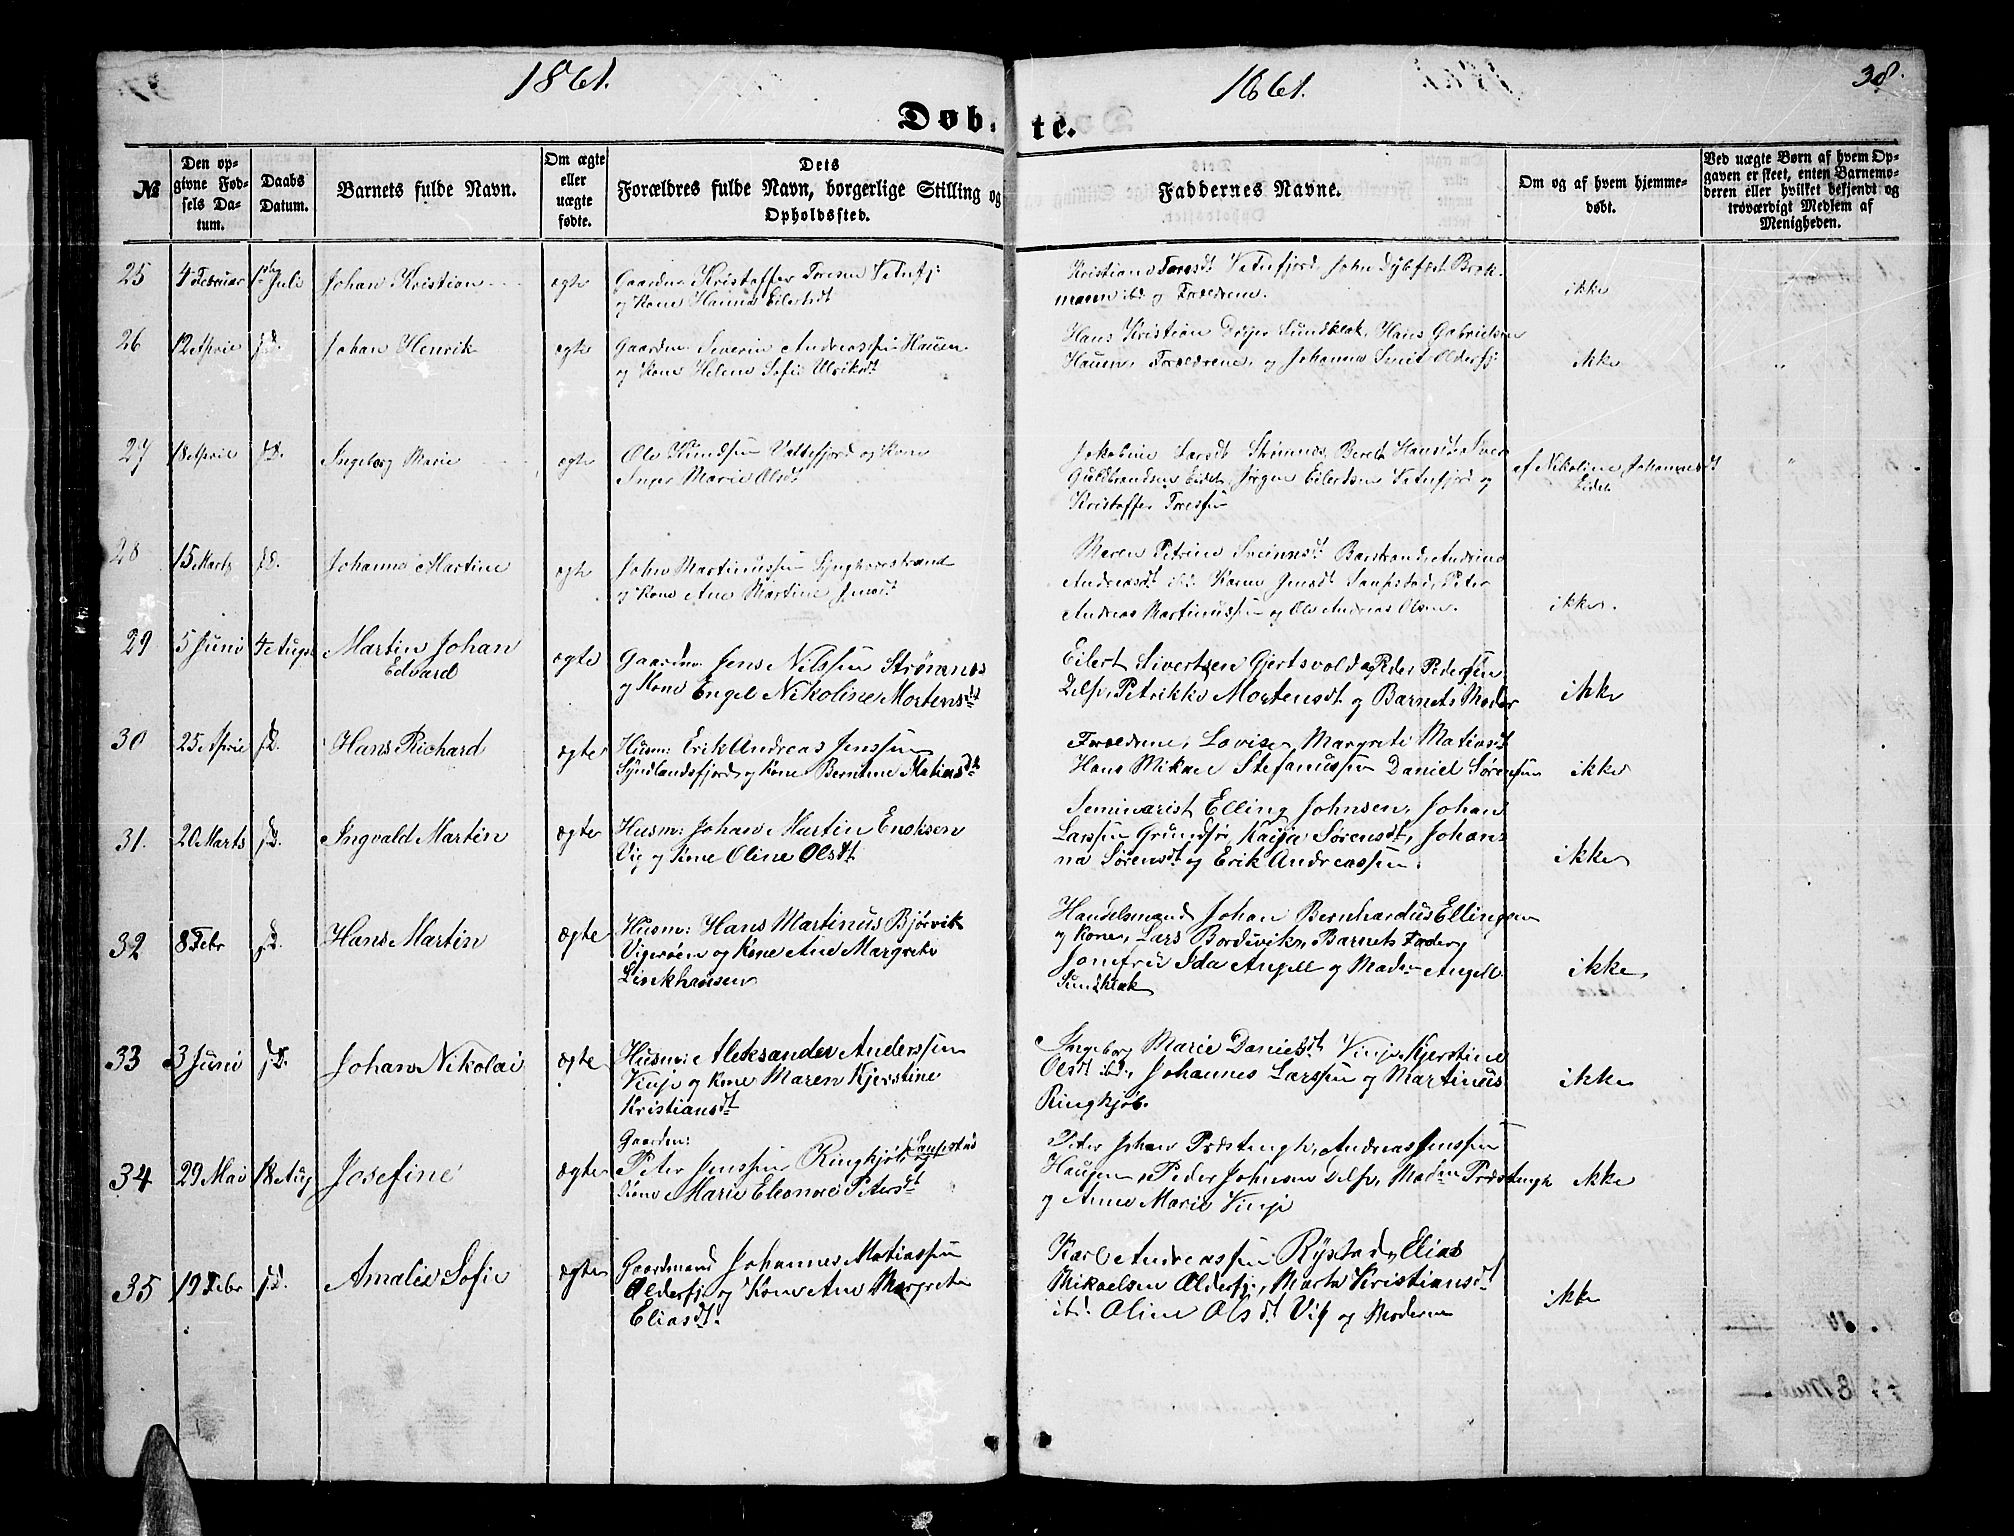 1861.
1861.
38.
Døb-
te.
№
Den op-
givne Fød-
sels Da-
tum.
Daabs
Datum.
Barnets fulde Navn.
Om ægte
eller
uægte
fødte.
Dets
Forældres fulde Navn, borgerlige Stilling og
Opholdssted.
Faddernes Navne.
Om og af hvem hjemme-
døbt.
Ved uægte Børn af hvem Op-
gaven er skeet, enten Barnemo-
deren eller hvilket bekjendt og
troværdigt Medlem af
Menigheden.
25 4 Februar Juli Johan Kristian ægte
Gaardm: Kristoffer Toresen
og Kone Hanna Eilertsdt
Kristiane Toresdt
og Forældrene.
ikke
26 12 April s.D. Johan Henrik ægte
Gaardm: Severin Andreassen Hauen
og Kone Helena Sofie Ulriksdt
Hans Kristian Dreyer Sundklak, Hans Gabrielsen
Hauen, Forældrene, og Johanna Smit Olderfj:
ikke
27 18 April s.D. Ingeborg Marie ægte
Ole Knudsen Valtefjord og Kone
Inger Marie Olsdt
Jakobine Larsdt Strømnes, Bereta Hansdt
Guldbrandsen Eidet, Jørgen Eilertsen og
Kristoffer Toresen
af Nikoline Johannesdt
Eidet
28 15 Marts s.D. Johanna Martine ægte
John Martinussen
og Kone Ane Martine Jensdt
Maren Petrine
Andreasdt ibd. Karen Jensdt Laupstad, Peter
Andreas Martinussen og Ole Andreas Olsen.
ikke.
29 5 Juni 4 August Martin Johan
Edvard
ægte
Gaardm: Jens Nilssen Strømnes
og Kone Engel Nikoline Mortensdt
Eilert Sivertsen Gjertsvold og Peder Pedersen
Delp, Petrikke Mortensdt og Barnets Moder
ikke
30 25 April s.D. Hans Richard ægte
Husm: Erik Andreas Jenssen
Syndlandsfjord og Kone Berntine Matiasdt
Forældrene, Lovise Margrete Matiasdt
Hans Mikael Stefanussen Daniel Sørensen
ikke
31. 20 Marts s.D. Ingvald Martin ægte
Husm: Johan Martin Enoksen
Vig og Kone Oline Olsdt
Seminarist Elling Johnsen, Johan
Larssen Grundfør, Kaisa Sørensdt, Johan-
na Sørensdt og Erik Andreassen.
ikke
32 8 Febr s.D. Hans Martin ægte
Husm: Hans Martinus Bjørvik
Vigerøen og Kone Ane Margrete
Linkhausen
Handelsmand Johan Bernhardus Ellingsen
og Kone, Lars Bordevik, Barnets Fader,
Jomfru Ida Angell og Madm Angell
Sundklak
ikke
33 3 Juni s.D. Johan Nikolai ægte
Husm: Aleksander Anderssen
Vinje og Kone Maren Kjerstine
Kristiansdt
Ingeborg Marie Danielsdt Vinje, Kjerstine
Olsdt ibd., Johannes Larssen og Martinus
Ringkjøb.
ikke
34 29 Mai 18 Aug Josefine ægte
Gaardm:
Peter Jenssen Ringkjøb Laupstad og
Kone Marie Eleonore Petersdt
Peter Johan Præstengh, Andreas Jenssen
Haugen, Peder Johnsen Delp, Madm Præstengh
og Anne Marie Vinje
ikke
35 19 Febr s.D. Amalie Sofie ægte
Gaardmand Johannes Matiassen
Olderfj: og Kone Ane Margreta
Eliasdt.
Karl Andreassen Rystad, Elias
Mikaelsen Olderfj:, Marta Kristiansdt
ibd. Oline Olsdt Vig og Moderen
ikke